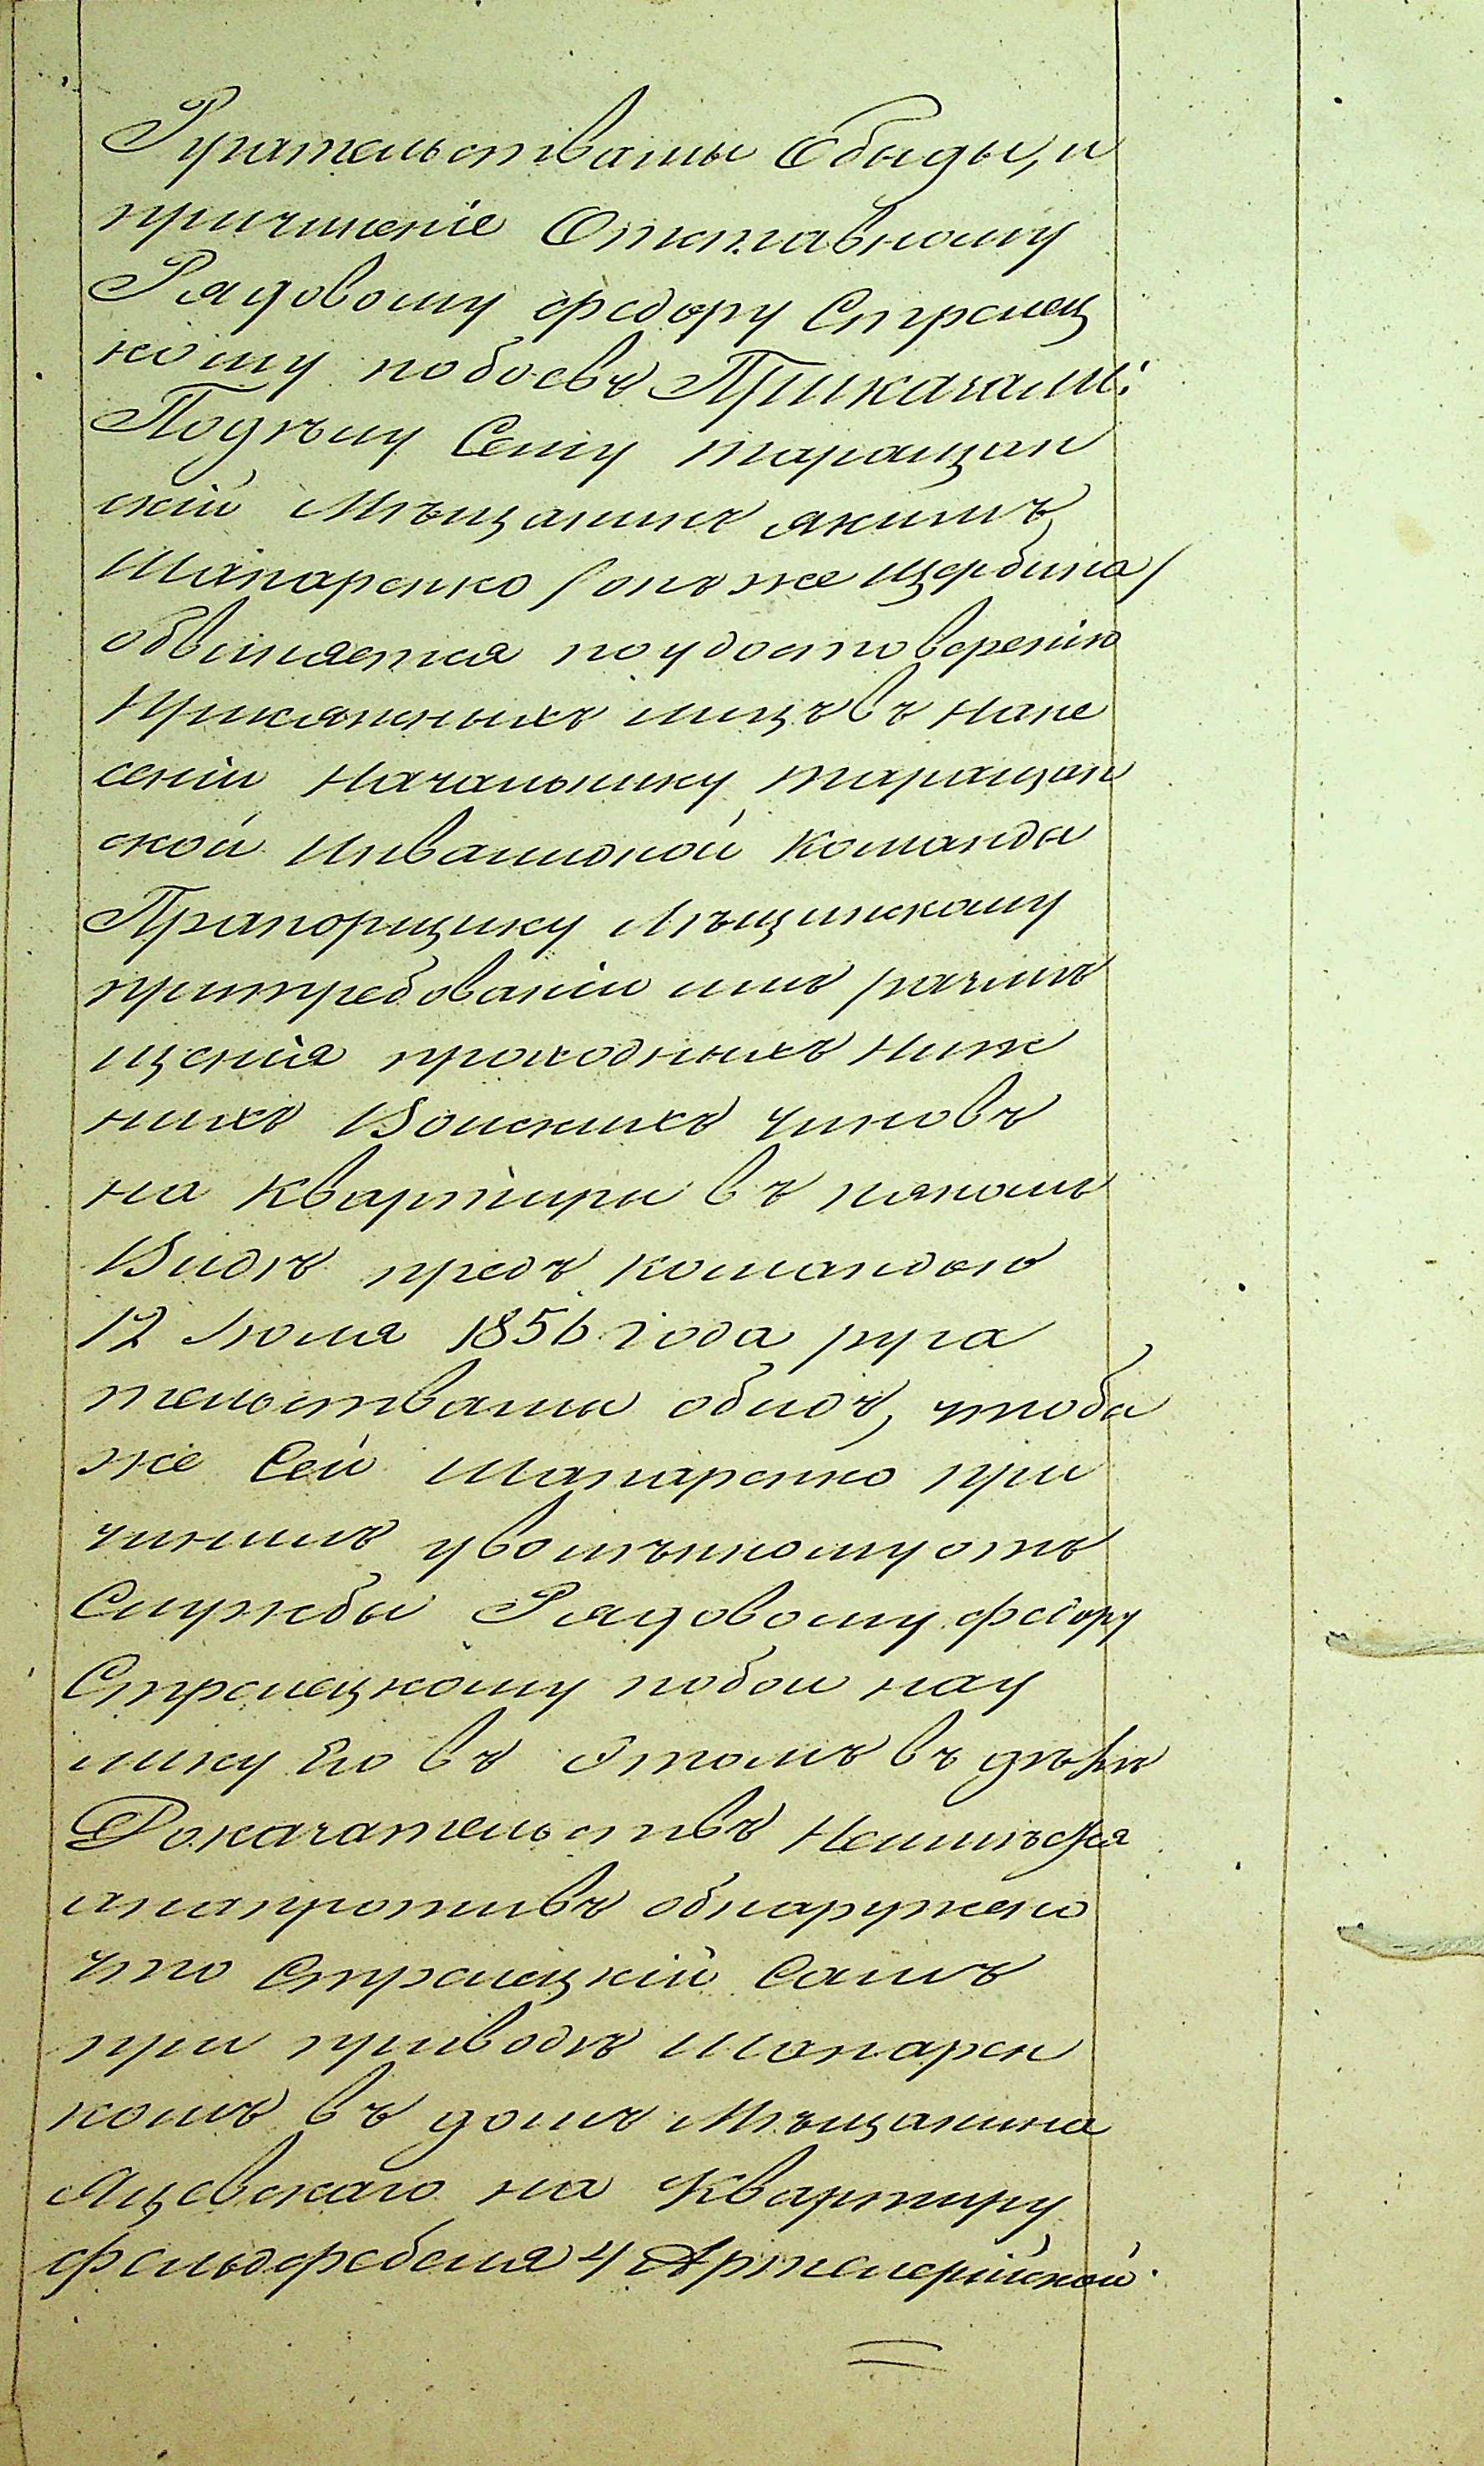 Ругательствамы Обиды, и
причинение Отставному
Рядовому федору Стрелец
кому побоевъ Приказали:
Подѣлу Сему таращан
скій Мѣщанинъ якимъ
Шапаренко /онъ же Щербина/
обвиняется поудостоверенію
Присяжныхъ лицъ въ нане
сеніи Начальнику таращан
ской Инвалидной Команды
Прапорщику Лѣщинскому
притребованіи имъ размѣ
щенія проходныхъ Ниж
нихъ Воискихъ чиновъ
на квартиры въ пяномъ
Видѣ предъ командою
12 Июля 1856 года руга
тельствамы обидъ, чтобы
же Сей Шапаренко при
чинилъ уволѣнному отъ
Службы Рядовому федору
Стрелецкому побои нау
лику Его въ Этомъ въ дѣлѣ
Доказательствъ Неимѣется
анапротивъ обнаружено
что Стрелецкій Самъ
при приводѣ Шапарен
комъ въ домъ Мѣщанина
Яцевскаго на Квартиру
фельдфебеля 4 Артелерійской